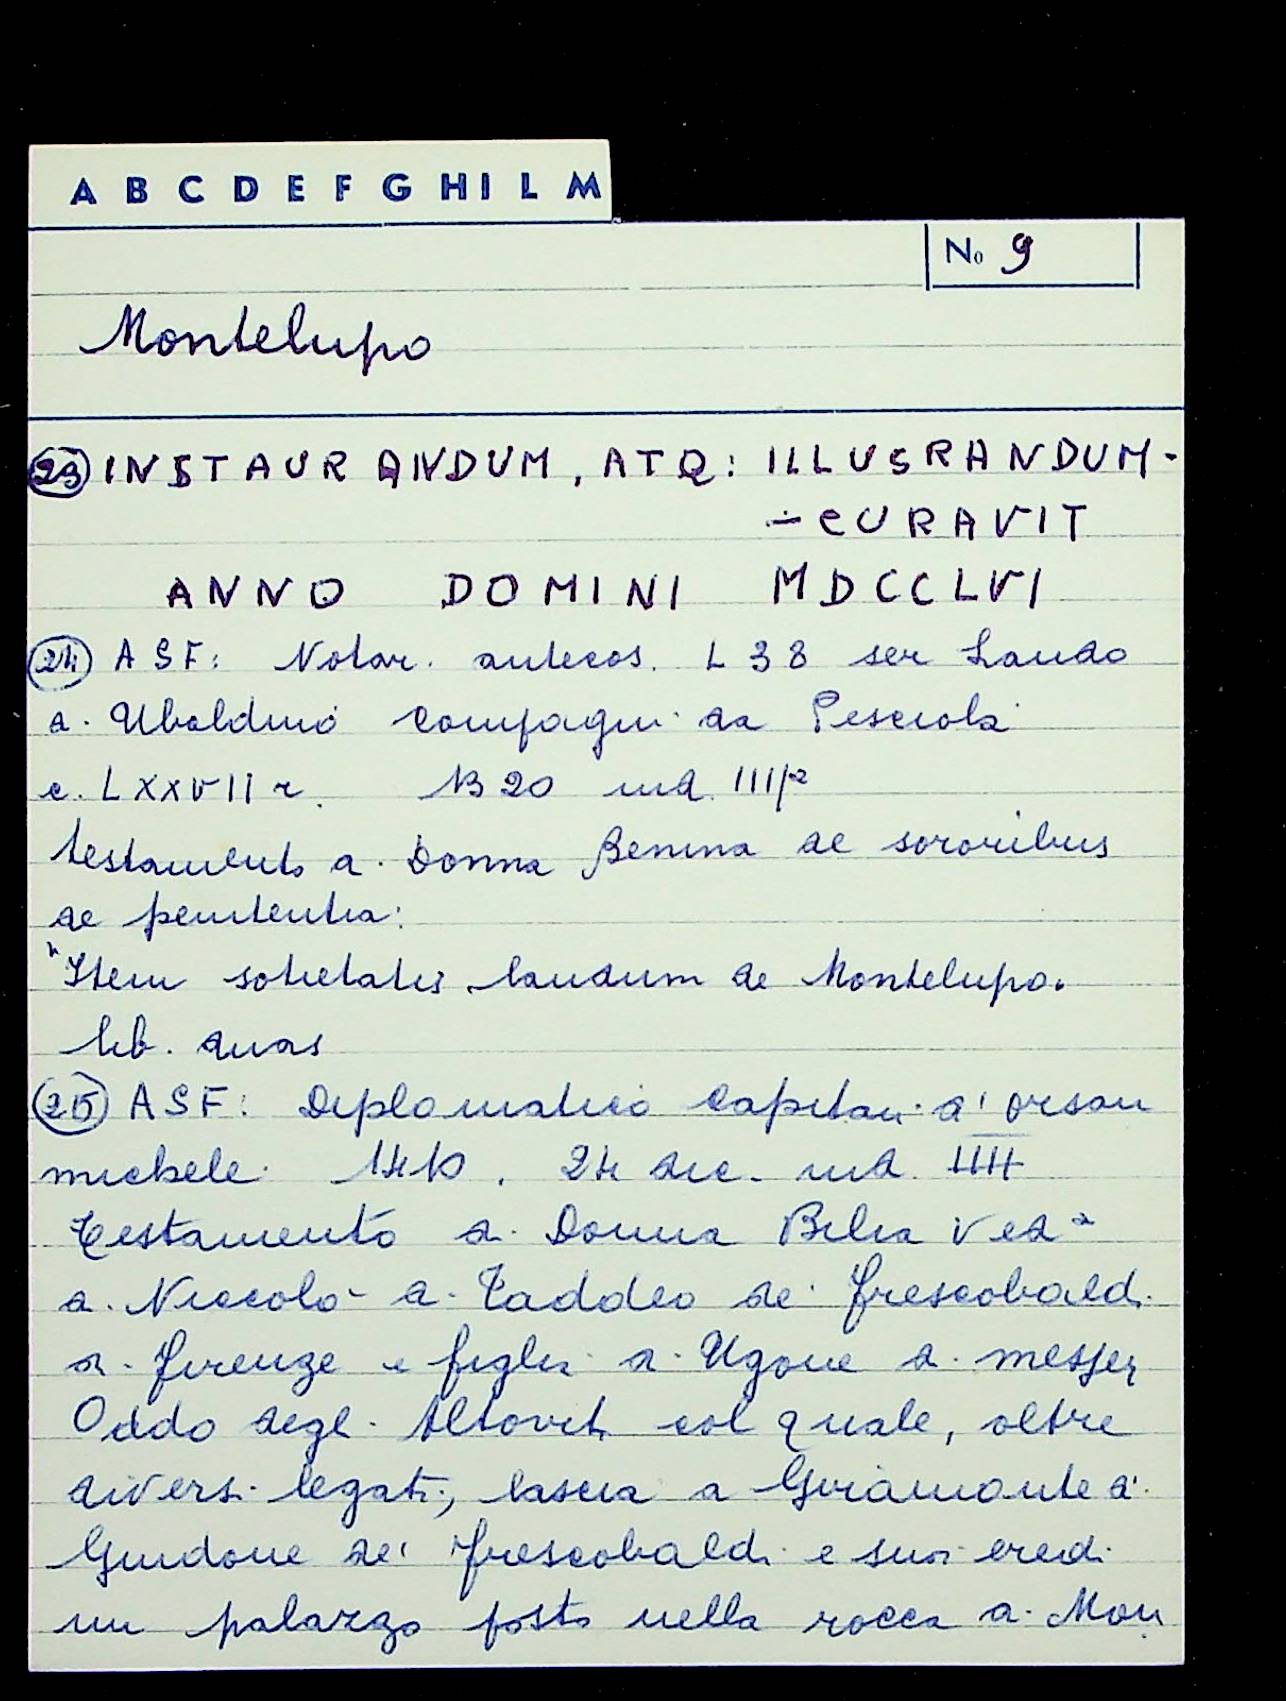 A B C D E F G H I L M
No 9
Montelupo
23 INSTAURANDUM, ATQ: ILLUSRANDUM-
- CURAVIT
ANNO DOMINI MDCCLVI
24 ASF: Notar. antecos. L 38 ser Lando
di Ubaldino Compagni da Pesciola
c. LXXVII r. 1320 ind. IIII
testamento di Donna Benina de sororibus
de penitentia:
"Item sotietatis laudum de Montelupo.
lib. duas
25 ASF: Diplomatico Capitani d'Orsan
michele. 24 dic. ind. IIII
Testamento di Donna Bilia Ved a
di Niccolò di Taddeo de' Frescobaldi
di Firenze e figlia di Ugone di messer
Oddo degli Altoviti col quale, oltre
diversi legati, lascia a Giramonte di
Guidone de' Frescobaldi e suoi eredi
un palazzo posto nella rocca di Mon